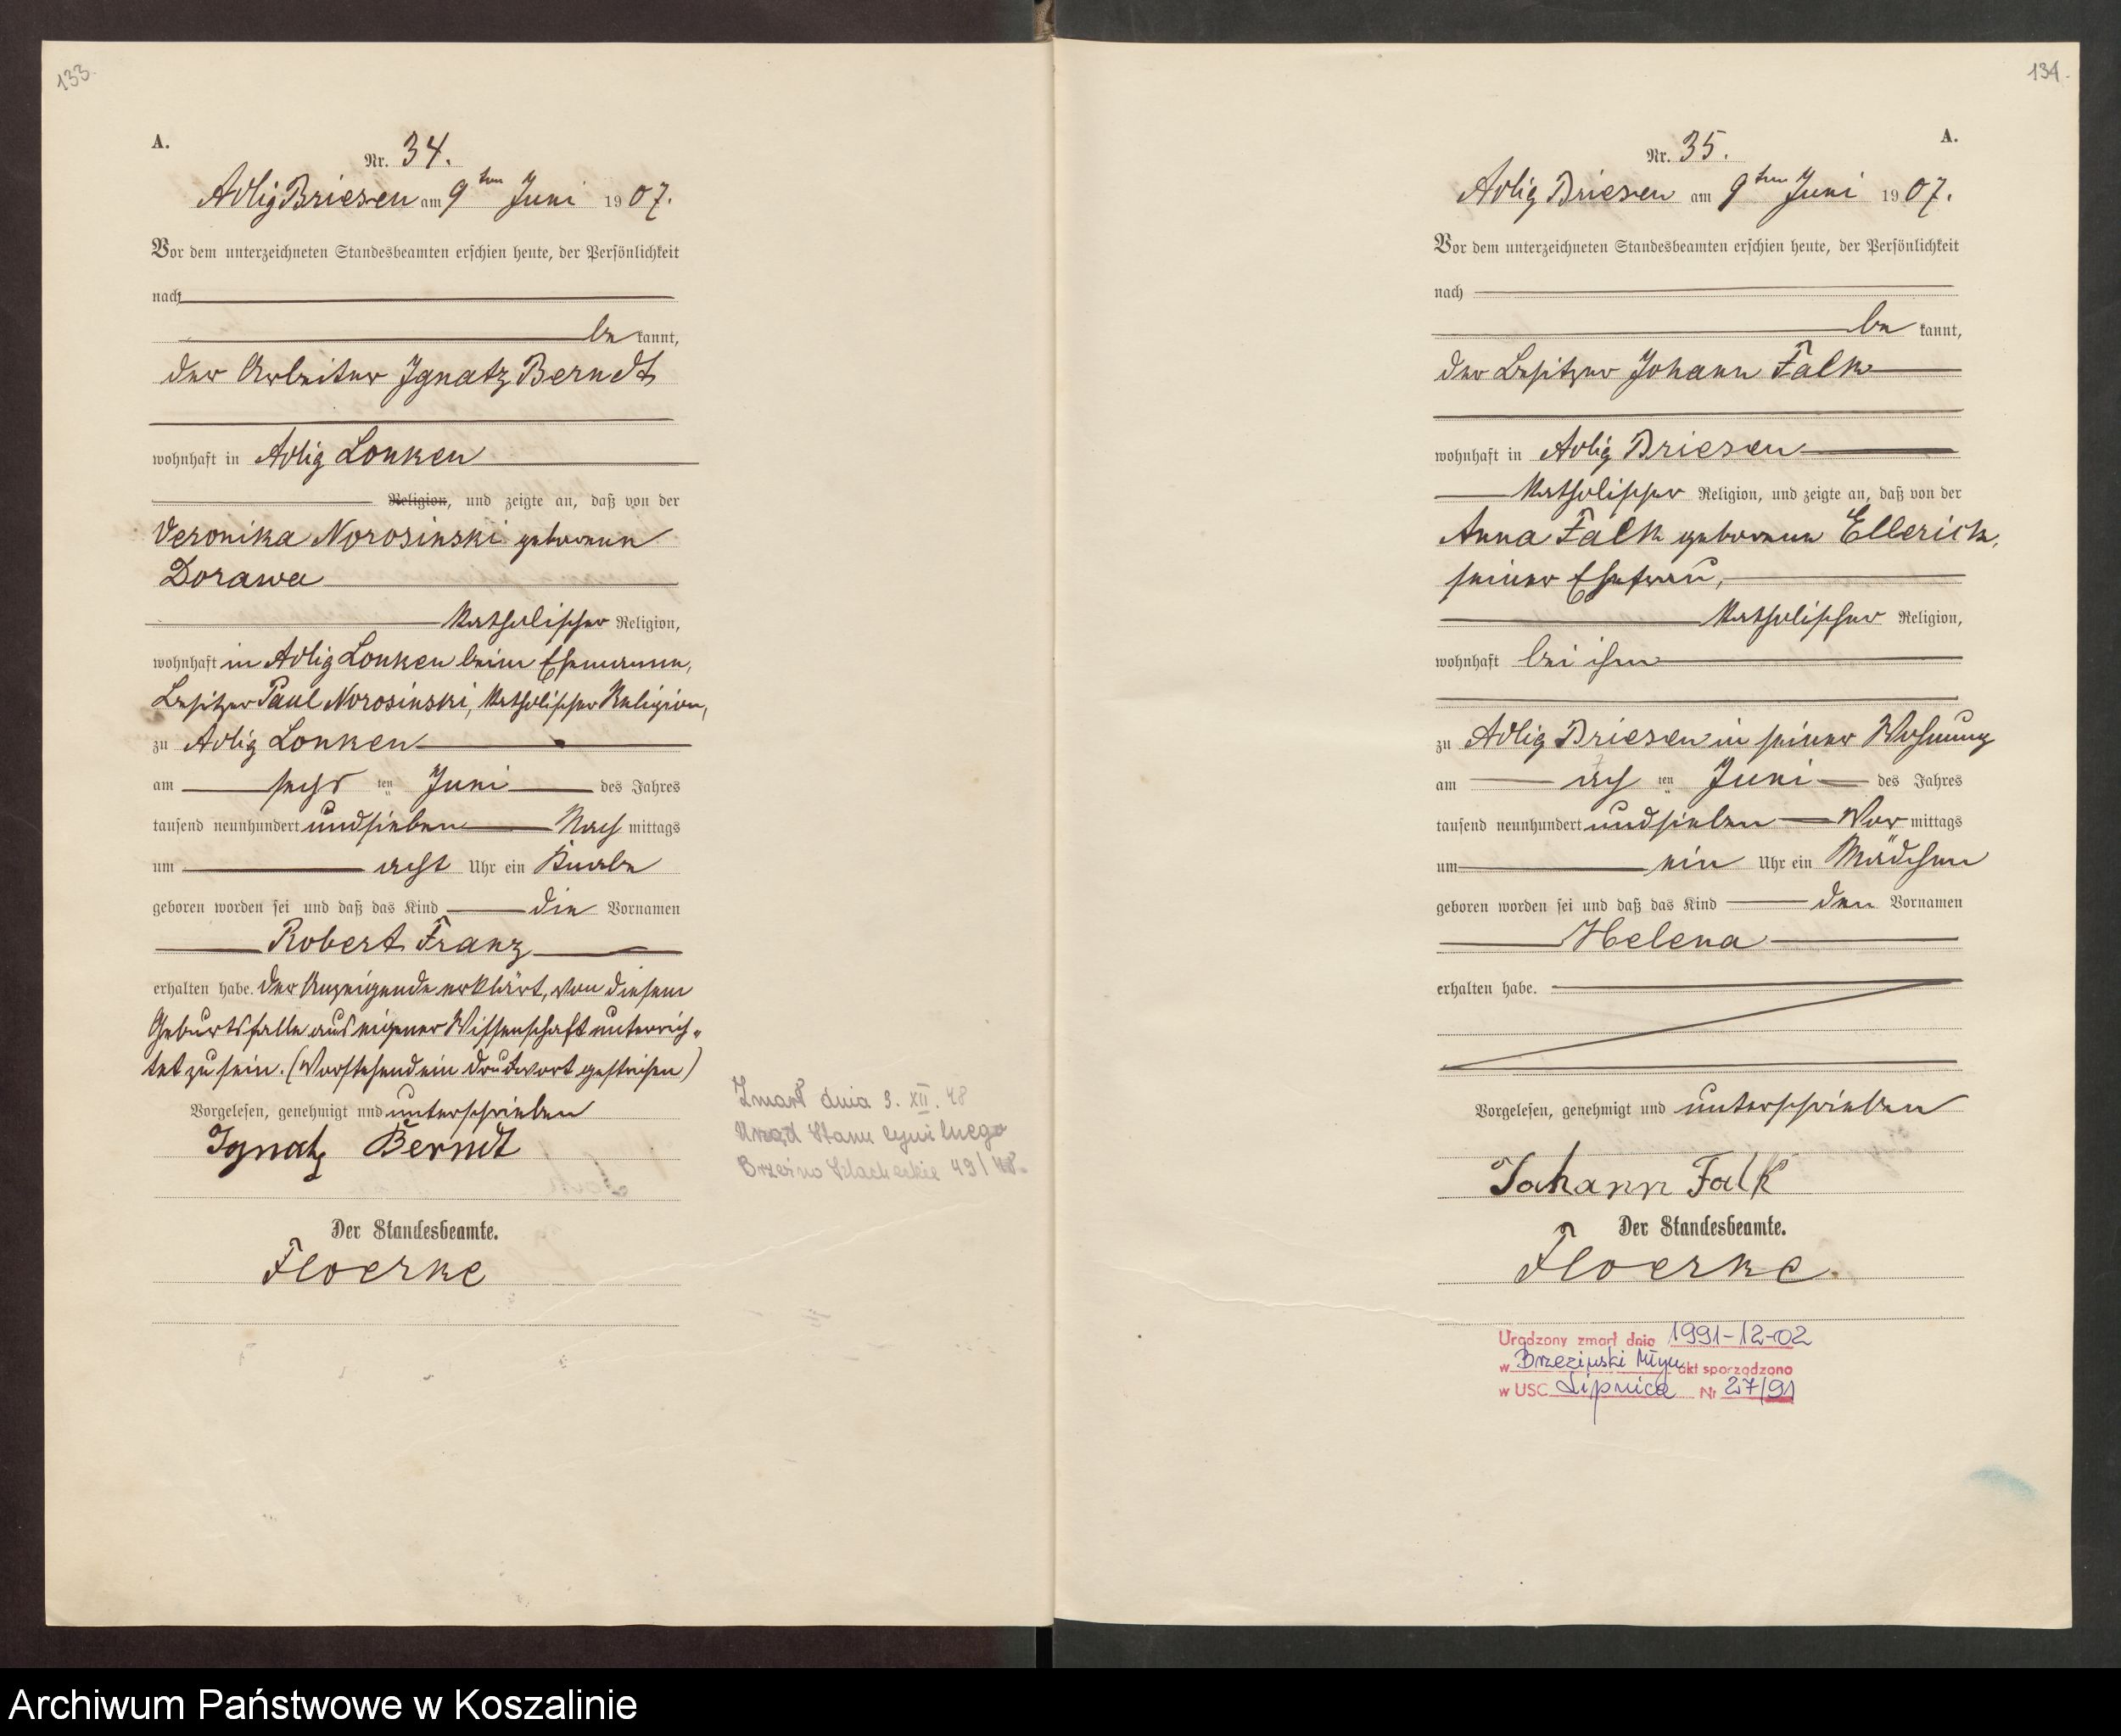 133.
A.
Nr. 34.
Adlig Briesen am 9ten Juni 1907.
Vor dem unterzeichneten Standesbeamten erschien heute, der Persönlichkeit
nach
be kannt,
der Arbeiter Ignatz Berndt
wohnhaft in Adlig Lonken
Religion, und zeigte an, daß von der
Veronika Norosinski geborenen
Dorawa
katholischer Religion,
wohnhaft in Adlig Lonken beim Ehemanne,
Besitzer Paul Norosinski, katholischer Religion,
zu Adlig Lonken
am sechs ten Juni des Jahres
tausend neunhundert undsieben Nach mittags
um acht Uhr ein Knabe
geboren worden sei und daß das Kind die Vornamen
Robert Franz
erhalten habe. Der Anzeigende erklärt, von diesem
Geburtsfalle aus eigener Wissenschaft unterrich-
tet zu sein. (Vorstehend ein Druckwort gestrichen)
Vorgelesen, genehmigt und unterschrieben
Ignatz Berndt
Der Standesbeamte.
Floerke
Zmarł dnia 3. XII. 48
Urząd Stanu Cywilnego
Brzeźno Szlacheckie 49/48.
134.
A.
Nr. 35.
Adlig Briesen am 9ten Juni 1907.
Vor dem unterzeichneten Standesbeamten erschien heute, der Persönlichkeit
nach
be kannt,
der Besitzer Johann Falk
wohnhaft in Adlig Briesen
katholischer Religion, und zeigte an, daß von der
Anna Falk geborenen Ellerick,
seiner Ehefrau,
katholischer Religion,
wohnhaft bei ihm
zu Adlig Briesen in seiner Wohnung
am ach ten Juni des Jahres
tausend neunhundert undsieben Vor mittags
um ein Uhr ein Mädchen
geboren worden sei und daß das Kind den Vornamen
Helena
erhalten habe.
Vorgelesen, genehmigt und unterschrieben
Johann Falk
Der Standesbeamte.
Floerke.
Urodzony zmarł dnia 1991-12-02
w Brzeziński Młyn akt sporządzono
w USC Lipnica Nr 27/91
Archiwum Państwowe w Koszalinie